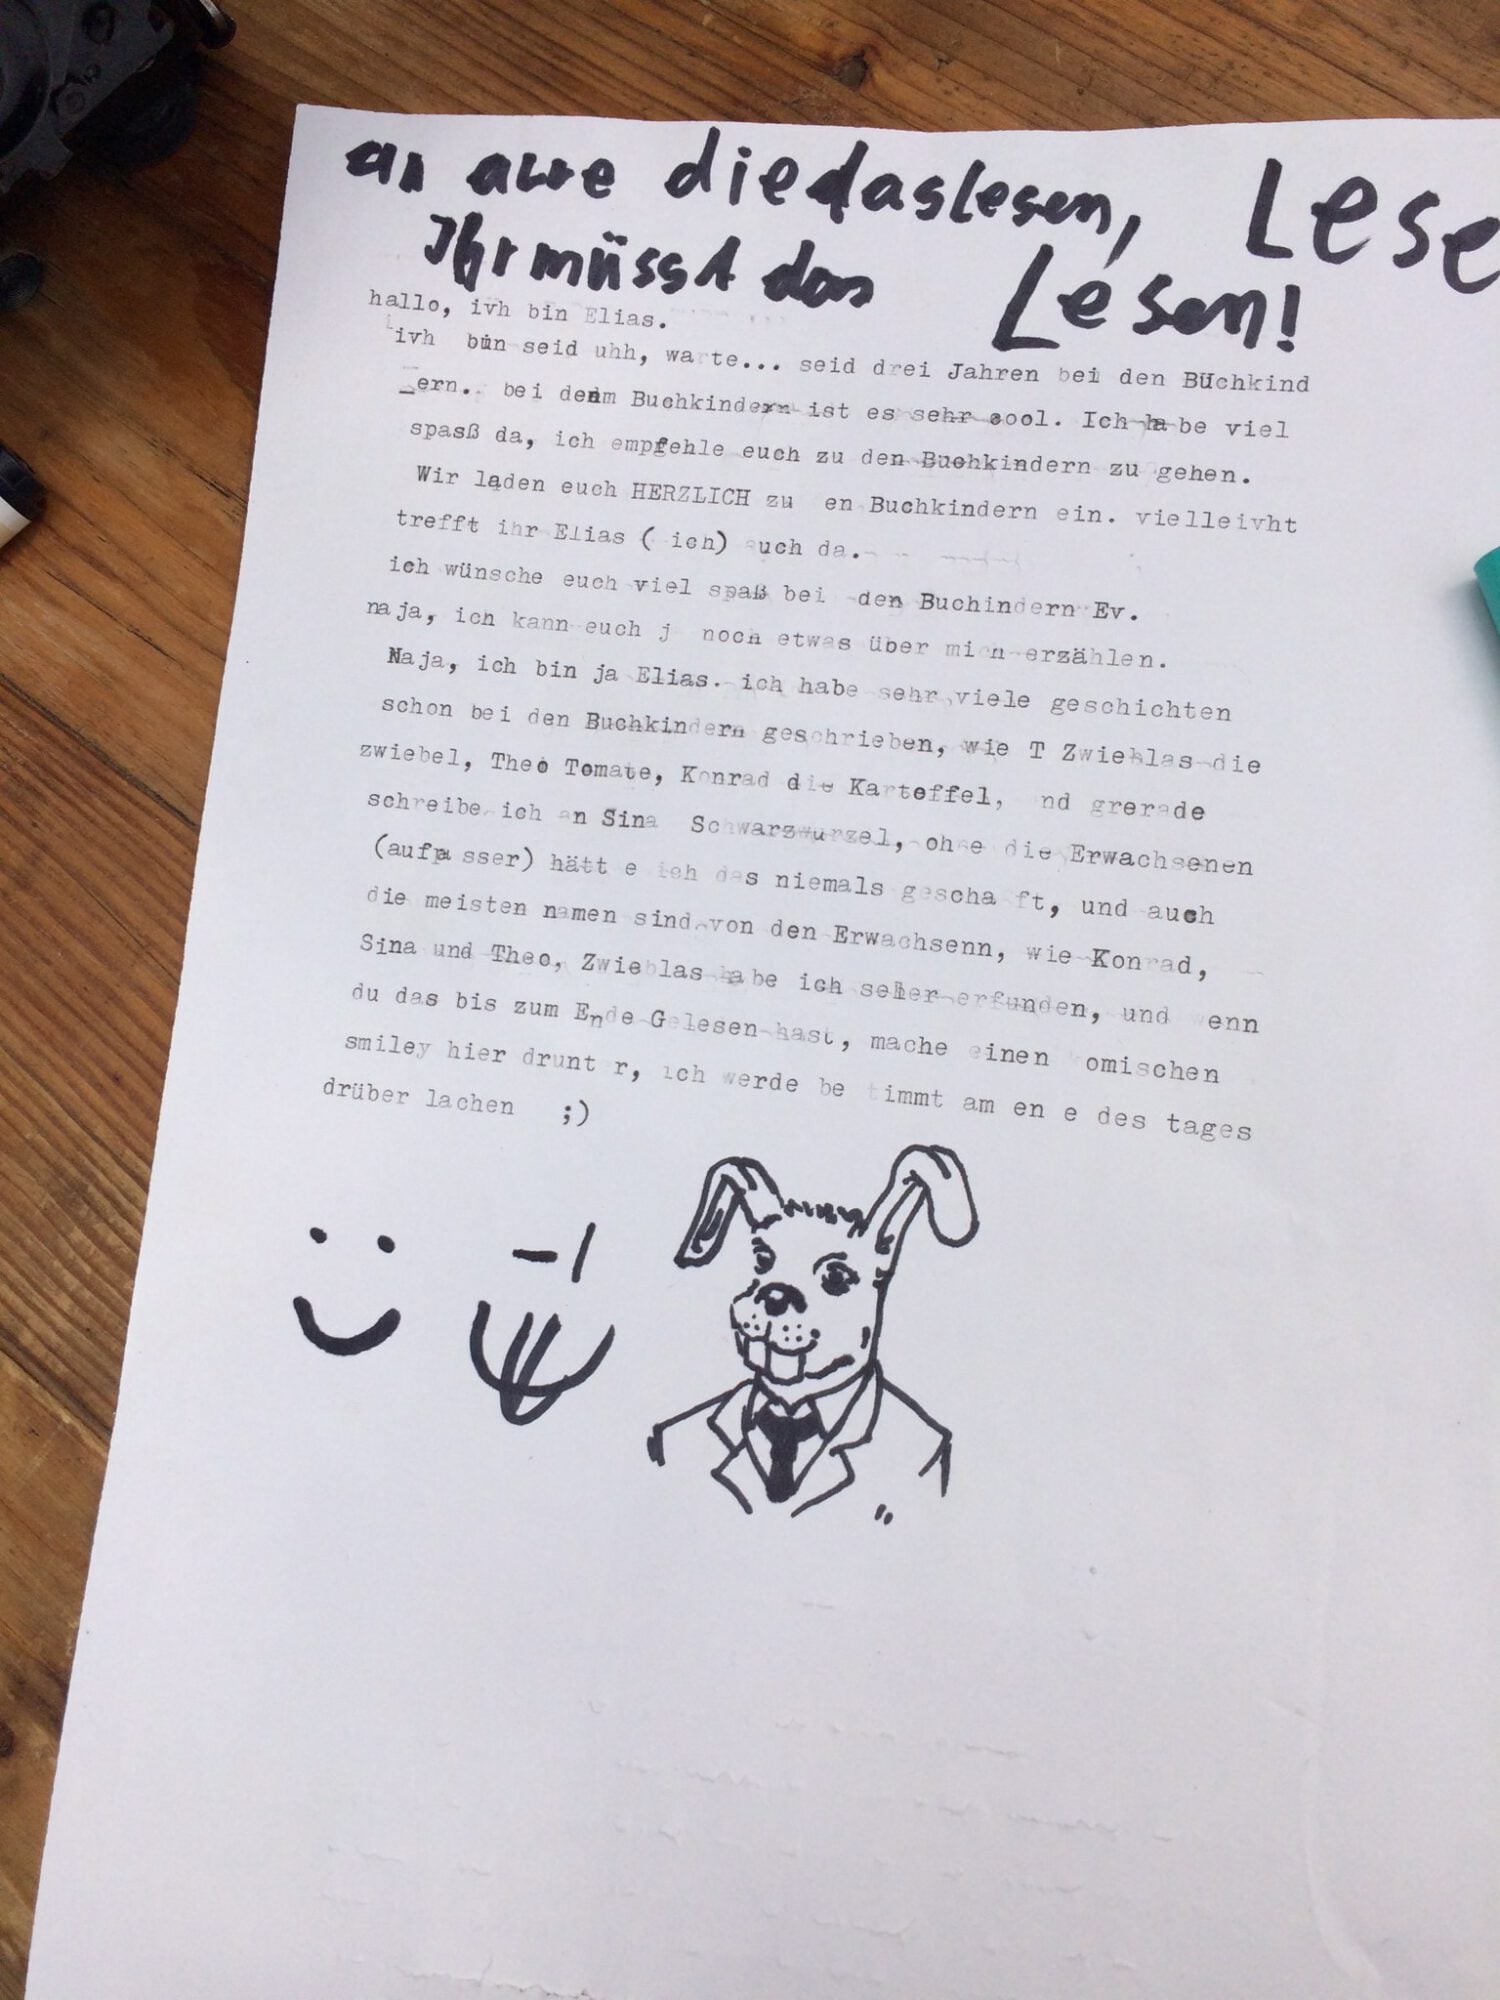 an alle diedaslesen, Lese
Ihr müsst das Lesen!
hallo, ivh bin Elias.
ivh bin seid uhh, warte... seid drei Jahren bei den BUchkind
ern.. bei denm Buchkindern ist es sehr cool. Ich habe viel
spasß da, ich empfehle euch zu den Buchkindern zu gehen.
Wir laden euch HERZLICH zu en Buchkindern ein. vielleivht
trefft ihr Elias ( ich) auch da.
ich wünsche euch viel spaß bei den Buchindern Ev.
naja, ich kann euch j noch etwas über mich erzählen.
Naja, ich bin ja Elias. ich habe sehr viele geschichten
schon bei den Buchkindern geschrieben, wie T Zwieblas die
zwiebel, Theo Tomate, Konrad die Kartoffel, nd grerade
schreibe ich an Sina Schwarzwurzel, ohne die Erwachsenen
(aufpa sser) hätt e ich das niemals gescha ft, und auch
die meisten namen sind von den Erwachsenn, wie Konrad,
Sina und Theo, Zwieblas habe ich selber erfunden, und wenn
du das bis zum Ende Gelesen hast, mache einen omischen
smiley hier drunt r, ich werde be timmt am en e des tages
drüber lachen ;)